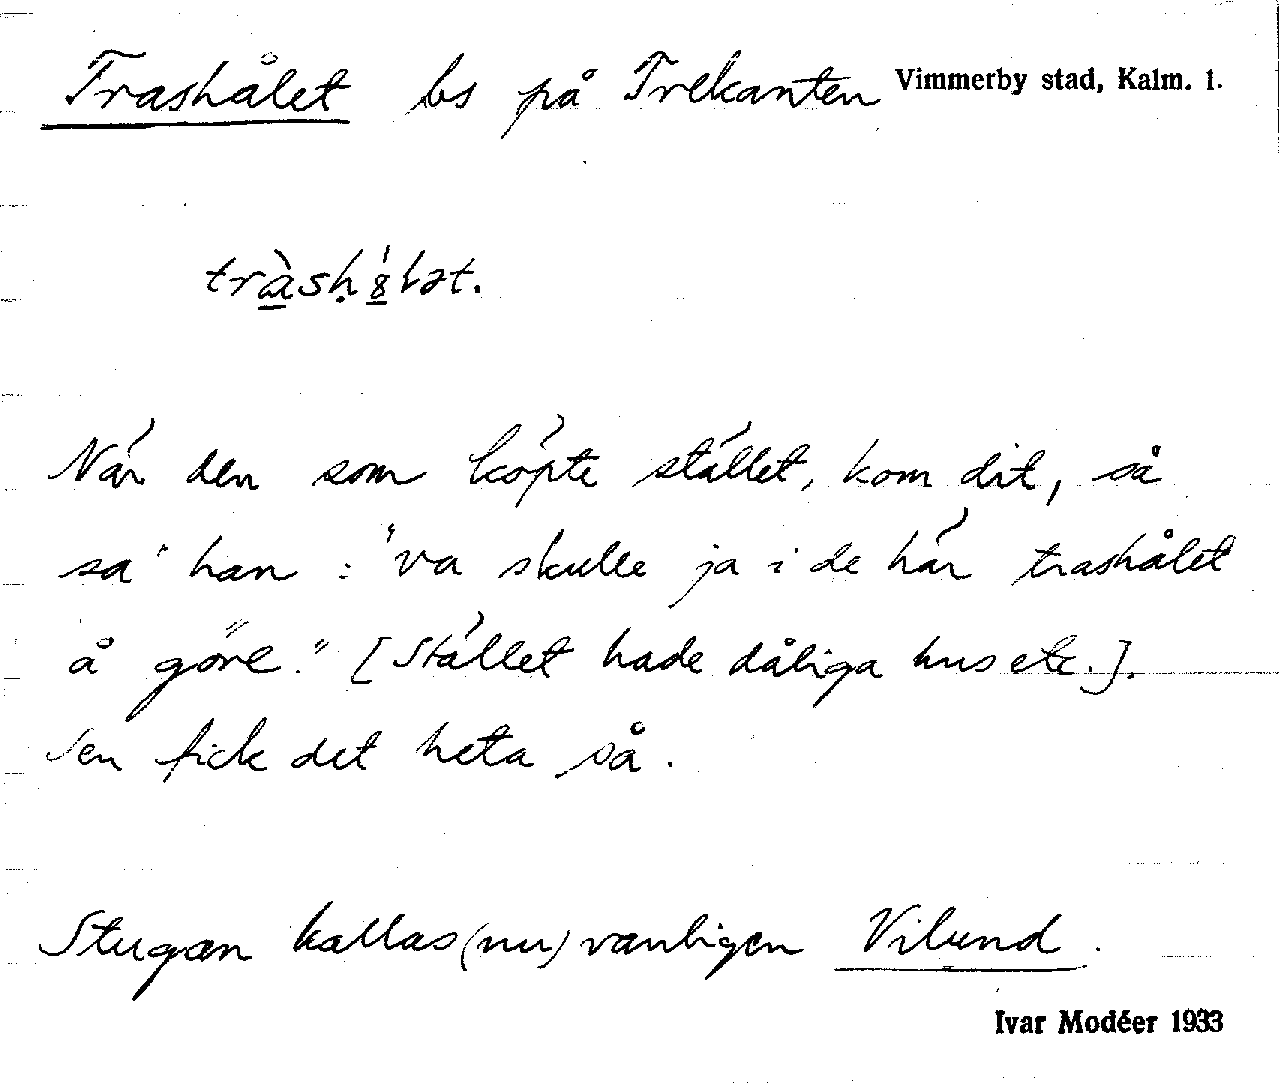 Trashålet bs på Trekanten Vimmerby stad, Kalm. l.
tràsḥ8́lət.
När den som köpte stället, kom dit, så
sa' han : "va skulle ja i de här trashålet
å göre." [Stället hade dåliga hus etc.].
Sen fick det heta så.
Stugan kallas (nu) vanligen Vilund.
Ivar Modéer 1933